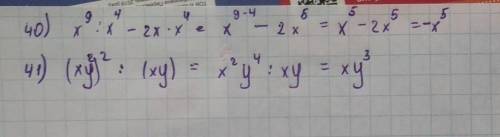 40) x⁹ : x⁴ - 2x · x⁴ = x⁹⁻⁴ - 2x⁵ = x⁵ - 2x⁵ = -x⁵
41) (xy²)² : (xy) = x²y⁴ : xy = xy³